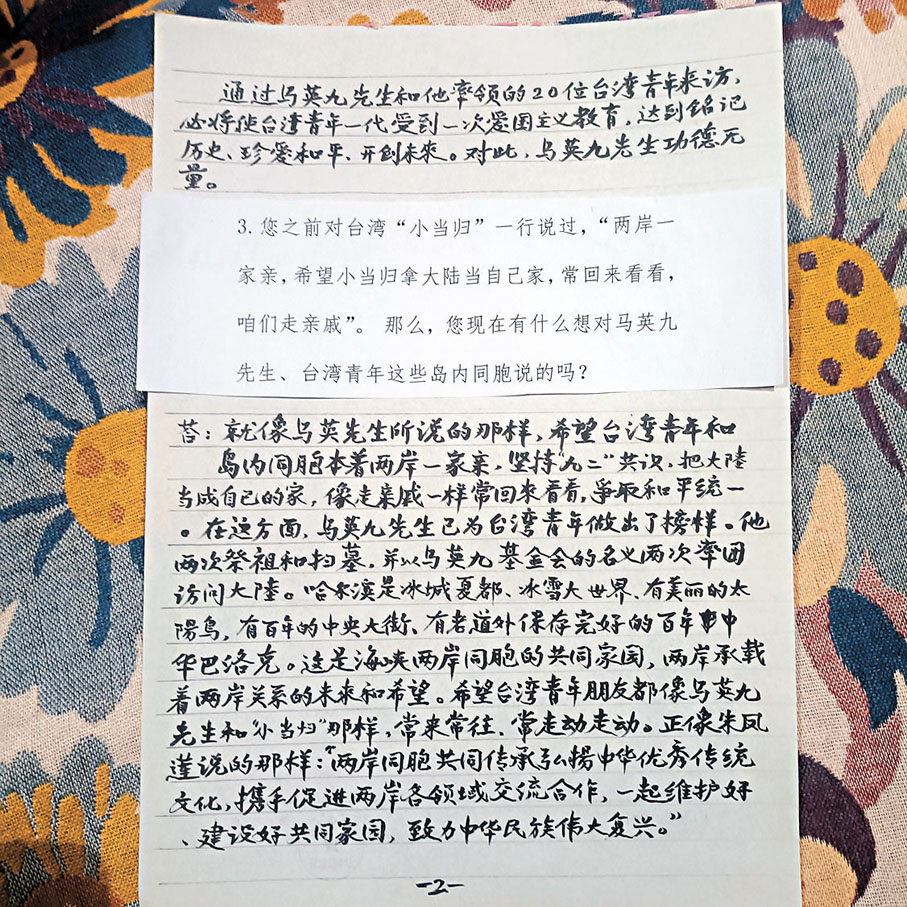 通过马英九先生和他率领的20位台湾青年来访，
必将使台湾青年一代受到一次爱国主义教育，达到铭记
历史、珍爱和平、开创未來。对此，马英九先生功德无
量。
3. 您之前对台湾“小当归”一行说过，“两岸一
家亲，希望小当归拿大陆当自己家，常回来看看，
咱们走亲戚”。 那么，您现在有什么想对马英九
先生、台湾青年这些岛内同胞说的吗？
荅：就像马英先生所说的那样，希望台湾青年和
岛内同胞本着两岸一家亲，坚持“九二”共识，把大陸
当成自己的家，像走亲戚一样常回来看看，爭取和平统一
。在这方面，马英九先生已为台湾青年做出了榜样。他
两次祭祖和扫墓，并以马英九基金会的名义两次率团
访问大陸。哈尔滨是冰城夏都、冰雪大世界、有美丽的太
陽鳥，有百年的中央大街、有老道外保存完好的百年中
华巴洛克。这是海峡两岸同胞的共同家园，两岸承载
着两岸关系的未來和希望。希望台湾青年朋友都像马英九
先生和“小当归”那样，常来常往、常走动走动。正像朱凤
莲说的那样：“两岸同胞共同传承弘揚中华优秀传统
文化，携手促进两岸各领域交流合作，一起维护好
、建设好共同家园，致力中华民族伟大复兴。”
-2-